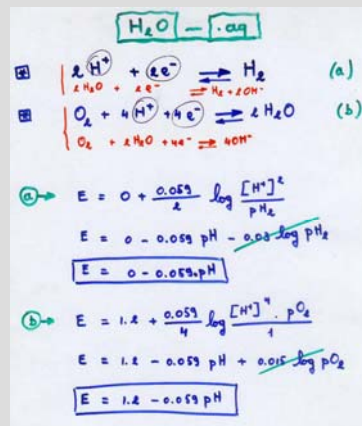 H₂O - .aq
2 H⁺ + 2e⁻ ⇌ H₂ (a)
2 H₂O + 2e⁻ ⇌ H₂ + 2OH⁻
O₂ + 4 H⁺ + 4e⁻ ⇌ 2 H₂O (b)
O₂ + 2 H₂O + 4e⁻ ⇌ 4OH⁻
a → E = 0 + 0.059/2 log [H⁺]²/pH₂
E = 0 - 0.059 pH - 0.03 log pH₂
E = 0 - 0.059.pH
b → E = 1.2 + 0.059/4 log [H⁺]⁴ . pO₂/1
E = 1.2 - 0.059 pH + 0.015 log pO₂
E = 1.2 - 0.059 pH